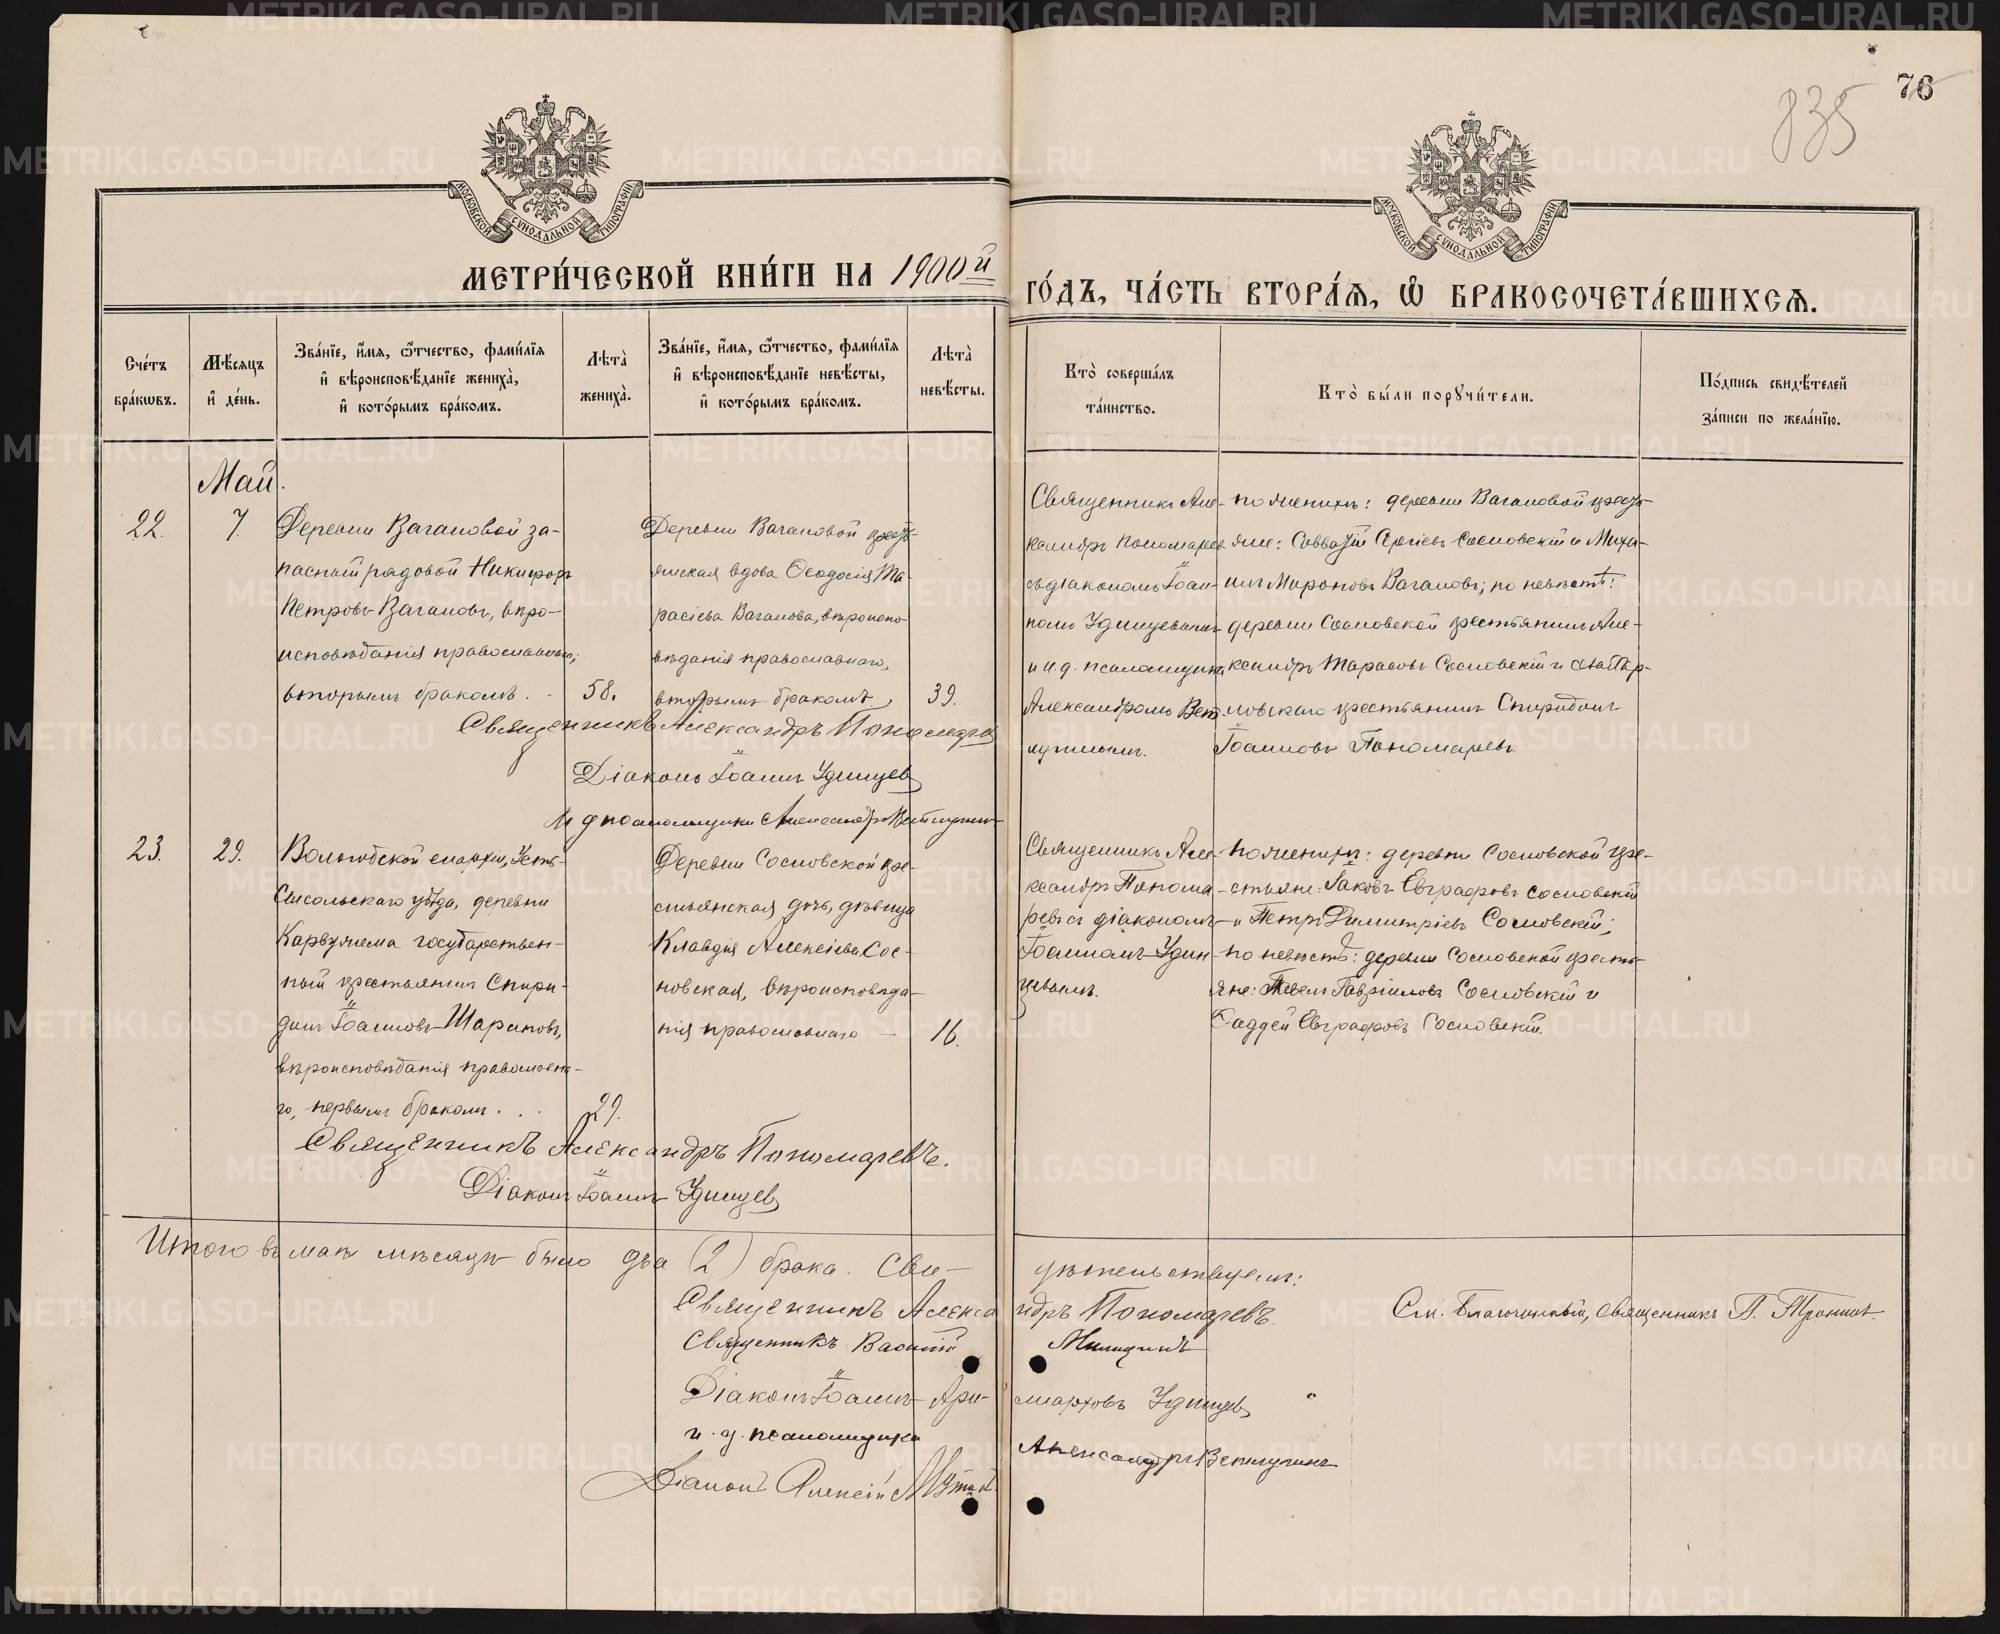 76
835
МОСКОВСКОЙ СѴНОДАЛЬНОЙ ТИПОГРАФІИ
МОСКОВСКОЙ СѴНОДАЛЬНОЙ ТИПОГРАФІИ
МЕТРИ́ЧЕСКОЙ КНИ́ГИ НА 1900й ГО́ДЪ, ЧА́СТЬ ВТОРА́Я, Ѽ БРАКОСОЧЕТА́ВШИХСЯ.
Сче́тъ бра́кѡвъ.
Мѣ́сяцъ и де́нь.
Зва́нїе, и́мя, ѻ҆́тчество, фами́лїя и вѣроисповѣ́данїе жениха̀, и кото́рымъ бра́комъ.
Лѣта̀ жениха̀.
Зва́нїе, и́мя, ѻ҆́тчество, фами́лїя и вѣроисповѣ́данїе невѣ́сты, и кото́рымъ бра́комъ.
Лѣта̀ невѣ́сты.
Кто̀ соверша́лъ та́инство.
Кто̀ бы́ли порꙋчи́тели.
По́дпись свидѣ́телей за́писи по жела́нїю.
Май.
22.
7.
Деревни Вагановой за-
пасный рядовой Никифоръ
Петровъ Вагановъ, вѣро-
исповѣданія православнаго,
вторымъ бракомъ.
58.
Деревни Вагановой кресть-
янская вдова Ѳеодосія Та-
расіева Ваганова, вѣроиспо-
вѣданія православнаго,
вторымъ бракомъ
39.
Священникъ Але-
ксандръ Пономаревъ
съ діакономъ Іоан-
номъ Удинцевымъ
и и.д. псаломщика
Александромъ Вет-
лугинымъ.
по женихѣ: деревни Вагановой кресть-
яне: Савватій Сергіевъ Сосновскій и Миха-
илъ Мироновъ Вагановъ; по невѣстѣ:
деревни Сосновской крестьянинъ Але-
ксандръ Тарасовъ Сосновскій и
крестьянинъ Спиридонъ
Іоанновъ Пономаревъ
Священникъ Александръ Пономаревъ
Діаконъ Іоаннъ Удинцев
И д псаломщика Александръ Ветлугинъ
23.
29.
Вологодской епархіи, Усть-
Сысольскаго уѣзда, деревни
Карвужема государствен-
ный крестьянинъ Спири-
донъ Іоанновъ Шараповъ,
вѣроисповѣданія православна-
го, первымъ бракомъ . . .
29.
Деревни Сосновской кре-
стьянская дочь, дѣвица
Клавдія Алексіева Сос-
новская, вѣроисповѣда-
нія православнаго —
16.
Священникъ Але-
ксандръ Понома-
ревъ съ діакономъ
Іоанномъ Удин-
цевымъ.
по женихѣ: деревни Сосновской кре-
стьяне: Іаковъ Евграфовъ Сосновскій
и Петръ Димитріевъ Сосновскій;
по невѣстѣ: деревни Сосновской кресть-
яне: Павелъ Гавріиловъ Сосновскій и
Ѳаддей Евграфовъ Сосновскій.
Священникъ Александръ Пономаревъ.
Діаконъ Іоаннъ Удинцев
Итого въ маѣ мѣсяцѣ было два (2) брака. Сви-
дѣтельствуемъ:
Священникъ Александръ Пономаревъ.
Священникъ Василій
Діаконъ Іоаннъ Ари-
старховъ Удинцев
и. д. псаломщика
Александръ Ветлугинъ
Діаконъ Алексій
См. Благочинный, священникъ П.
METRIKI.GASO-URAL.RU